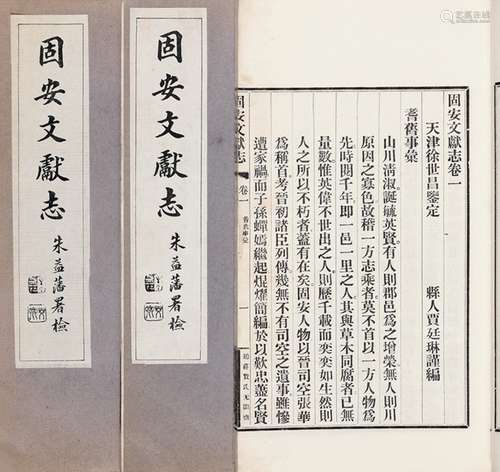 固安文獻志
朱益藩署檢
固安文獻志
朱益藩署檢
固安文獻志卷一
天津徐世昌鑒定 縣人賈廷琳謹編
耆舊事彙
山川清淑誕毓英賢有人則郡邑爲之增榮無人則川
原因之寡色故稽一方志乘者莫不首以一方人物爲
先時閱千年卽一邑一里之人其與草木同腐者已無
量數惟英偉不世出之人則歷千載而奕奕如生然則
人之所以不朽者蓋有在矣固安人物以晉司空張華
爲稱首考晉初諸臣列傳幾無不有司空之遺事雖慘
遭家禍而子孫蟬嫣繼起焜燿簡編於以歎忠藎名賢
固安文獻志 卷一 耆舊事彙